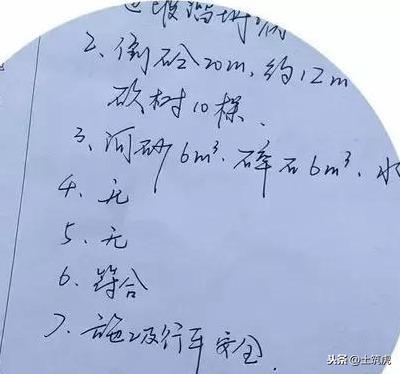 2、砼20m,约12m
砍树10棵.
3、河砂6m³、碎石6m³、水
4、无
5、无
6、符合
7、施工及行车安全.
头条 @土筑虎